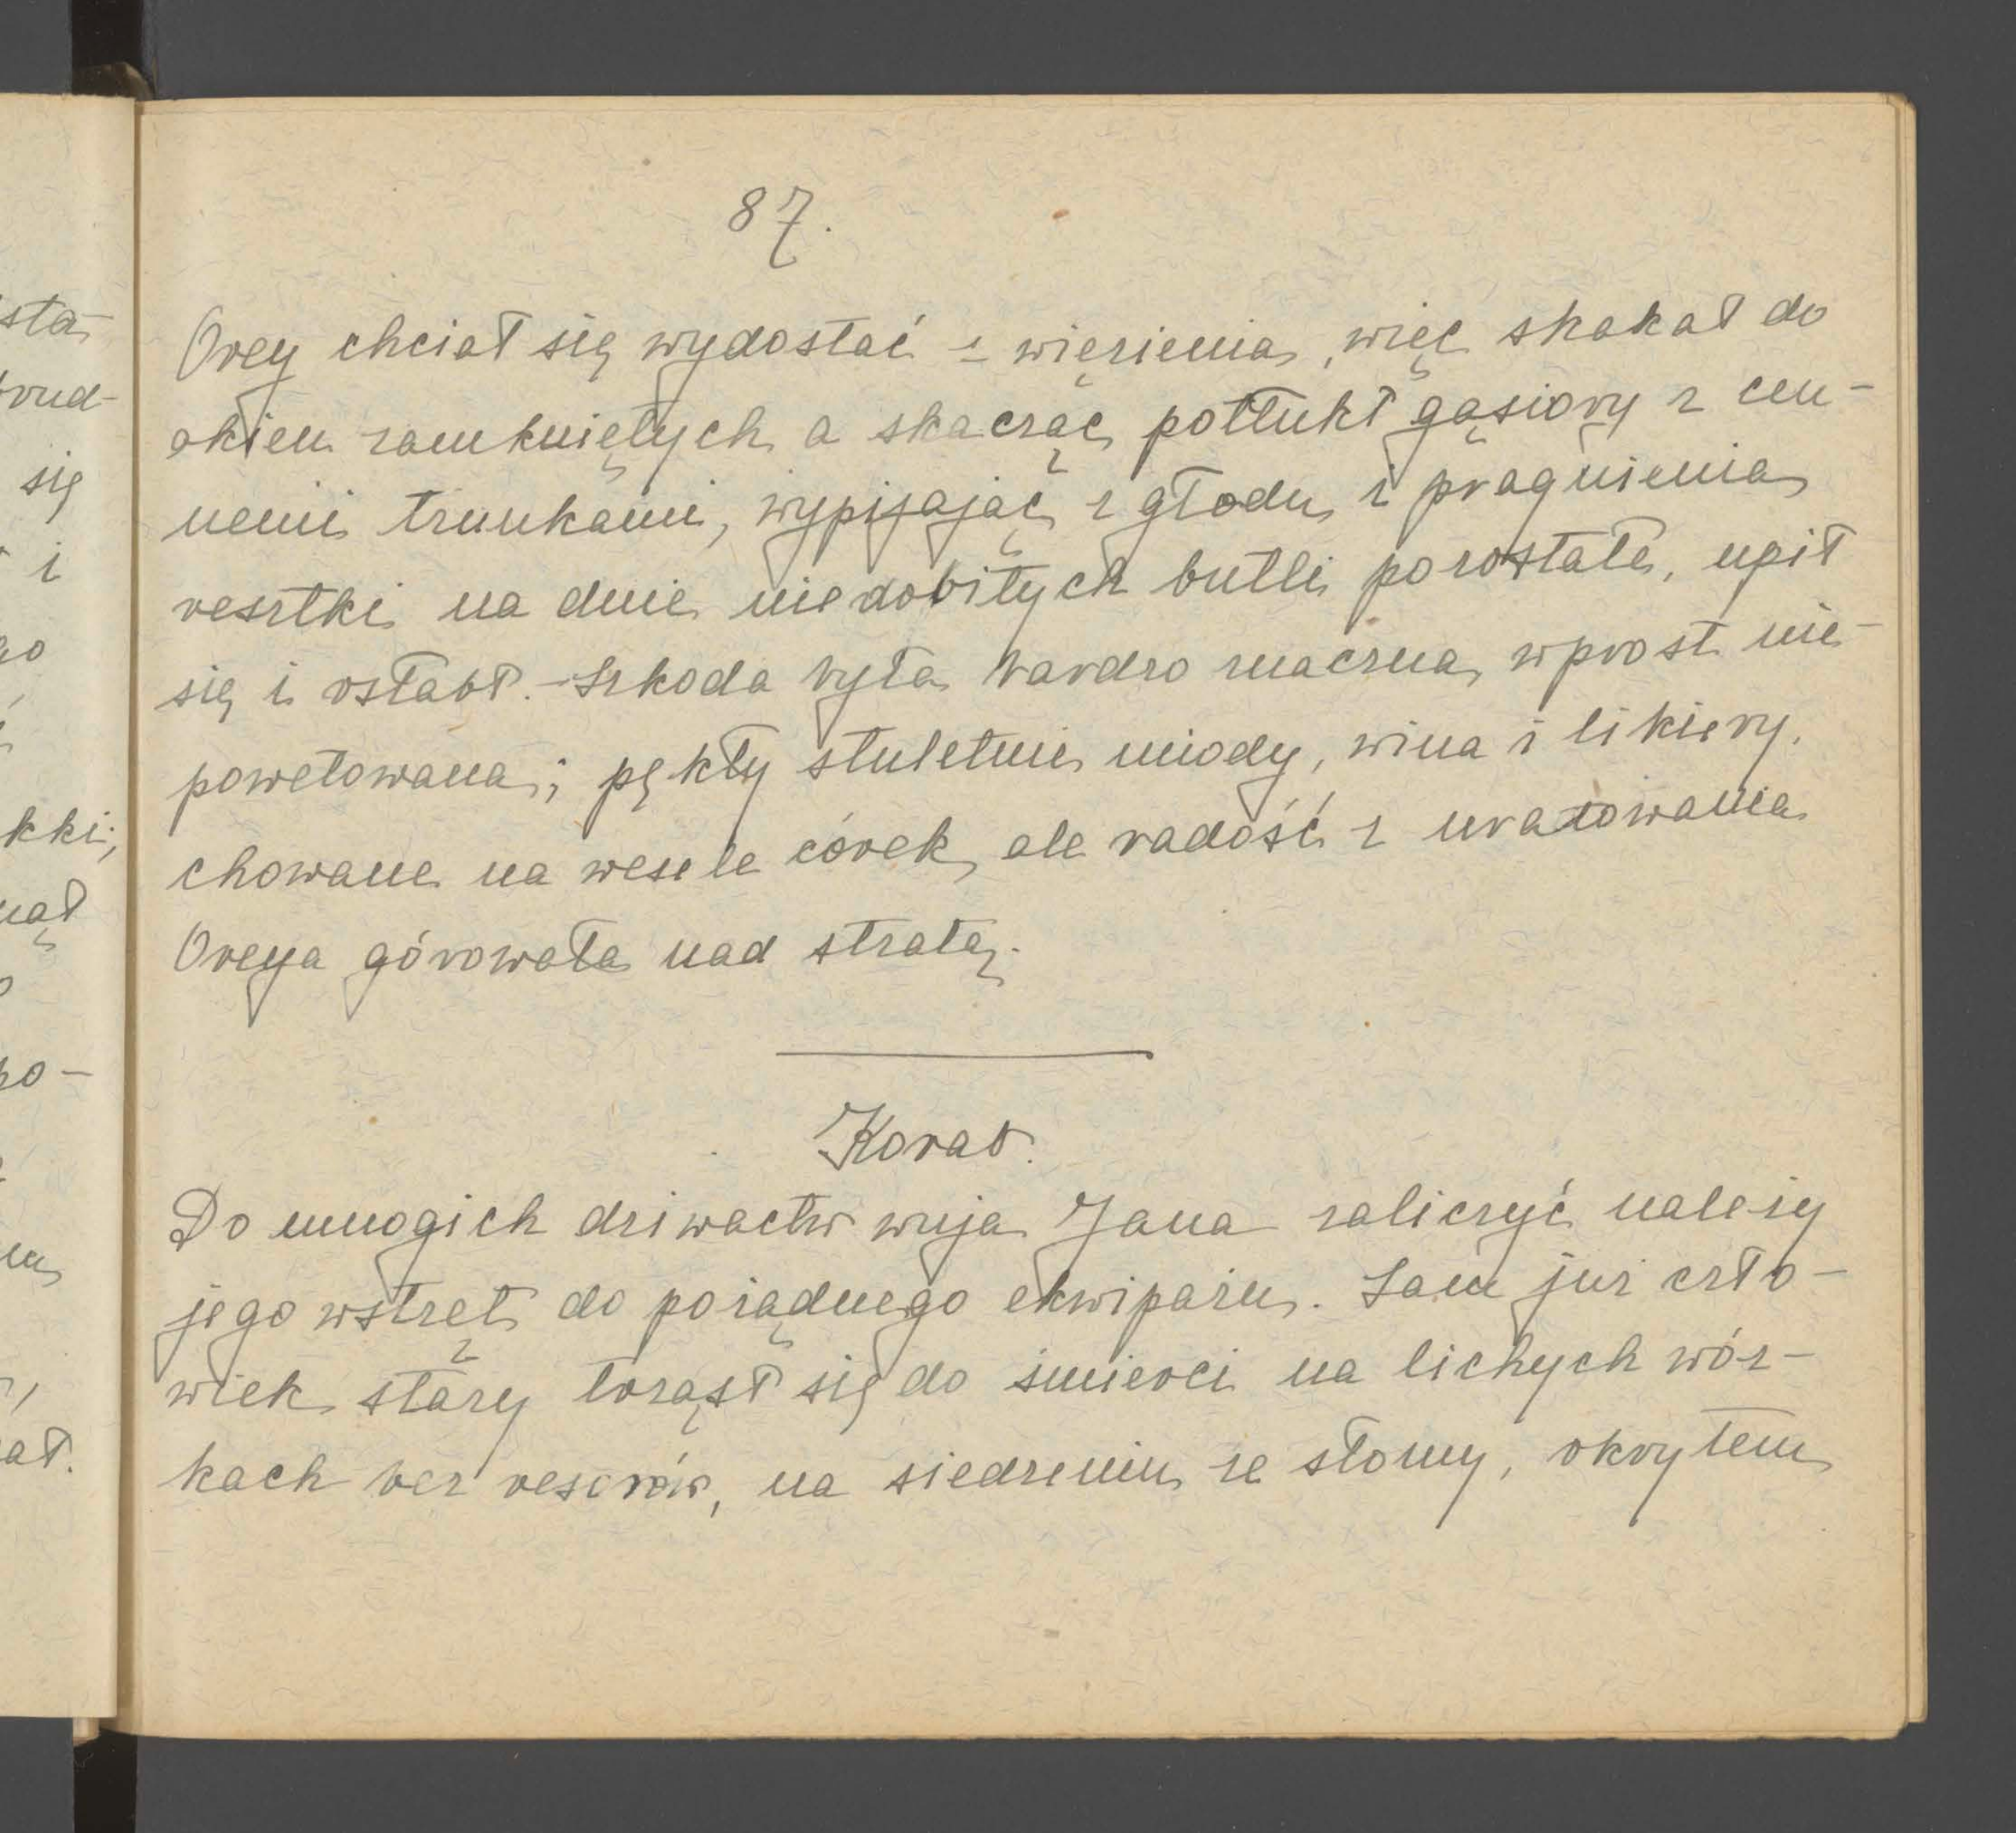 87.
Orey chciał się wydostać z więzienia, więc skakał do
okien zamkniętych a skacząc potłukł gąsiory z cen-
nemi trunkami, wypijając z głodu i pragnienia
resztki na dnie niedobitych butli pozostałe, upił
się i osłabł. - Szkoda była bardzo znaczna, wprost nie-
powetowana; pękły stuletnie miody, wina i likiery,
chowane na wesele córek, ale radość z uratowania
Oreya górowała nad stratą.
Korab.
Do mnogich dziwactw wuja Jana zaliczyć należy
jego wstręt do porządnego ekwipażu. Sam już czło-
wiek stary trząsł się do śmierci na lichych wóz-
kach bez resorów, na siedzeniu ze słomy, okrytem